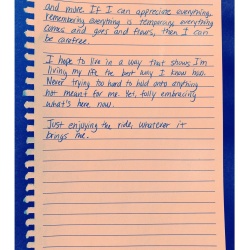 and more. If I can appreciate everything,
remembering everything is temporary, everything
comes and goes and flows, then I can
be carefree.
I hope to live in a way that shows I'm
living my life the best way I know how.
Never trying too hard to hold onto anything
not meant for me. Yet, fully embracing
what's here now.
Just enjoying the ride, whatever it
brings me.